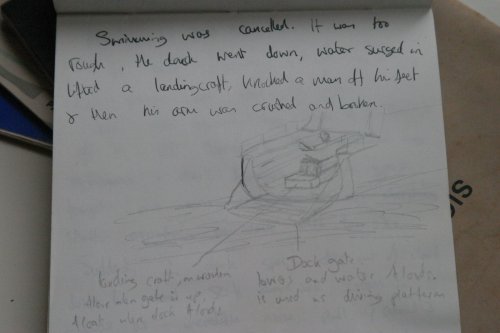 Swimming was cancelled. It was too
rough, the dock went down, water surged in
lifted a landingcraft, knocked a man off his feet
& then his arm was crushed and broken.
landing craft, on wooden
floor when gate is up,
float when dock floods
Dock gate
lowers and water floods.
is used as diving platform